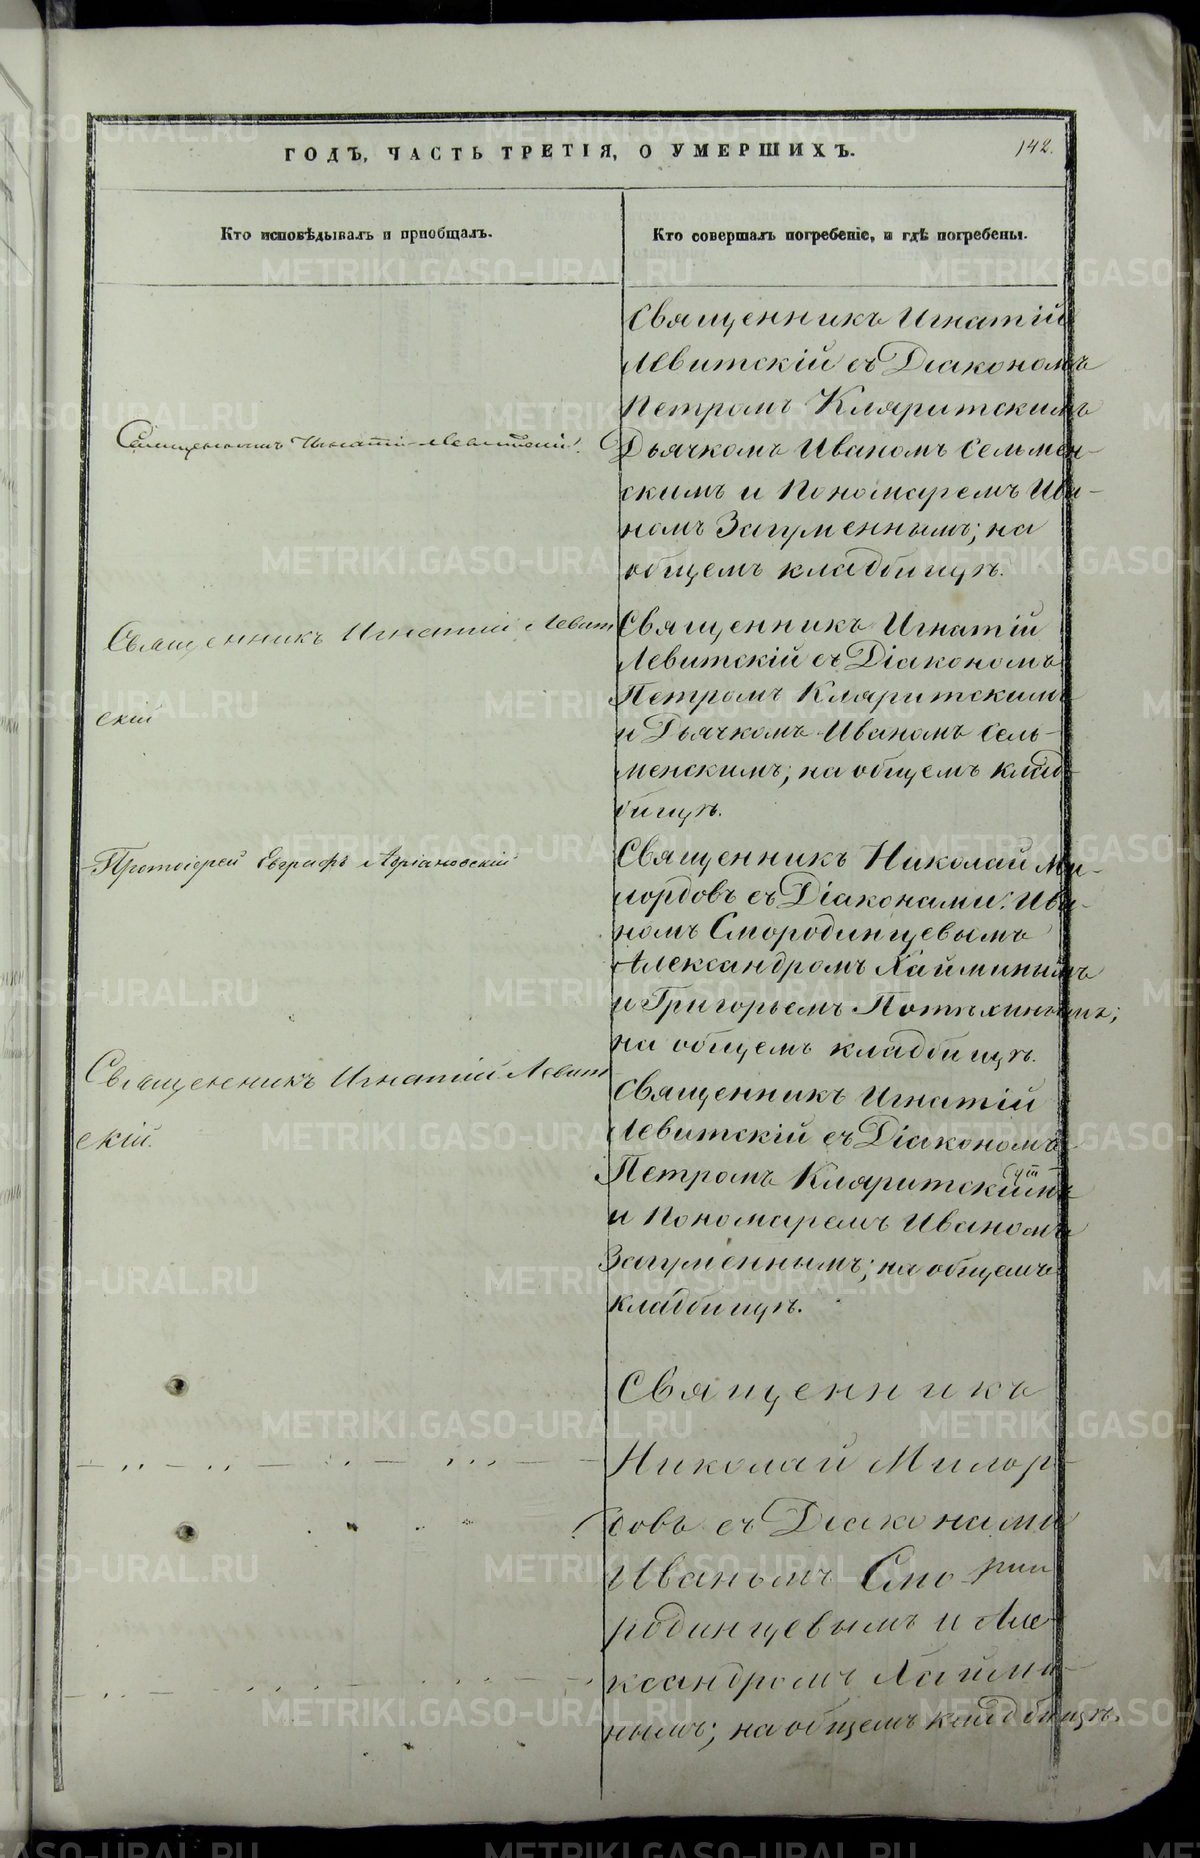 ГОДЪ, ЧАСТЬ ТРЕТІЯ, О УМЕРШИХЪ.
142.
Кто исповѣдывалъ и пріобщалъ.
Кто совершалъ погребеніе, и гдѣ погребены.
Священникъ Игнатій
Левитскій съ Діакономъ
Петромъ Кляритскимъ
Дьячкомъ Иваномъ Сельмен-
скимъ и Пономаремъ Ива-
номъ Загуменнымъ; на
общемъ кладбищѣ.
Священникъ Игнатій Левитскій.
Священникъ Игнатій
Левитскій съ Діакономъ
Петромъ Кляритскимъ
и Дьячкомъ Иваномъ Сель-
менскимъ; на общемъ клад-
бищѣ.
Священникъ Игнатій Левит
скій
Священникъ Николай Ми-
лордовъ съ Діаконами: Ива-
номъ Смородинцевымъ
Александромъ Хайминымъ
и Григорьемъ Потѣхинымъ;
на общемъ кладбищѣ.
Протоіерей Евграфъ Адріановскій
Священникъ Игнатій
Левитскій съ Діакономъ
Петромъ Кляритскимъ
и Пономаремъ Иваномъ
Загуменнымъ; на общемъ
кладбищѣ.
Священникъ Игнатій Левит
скій.
Священникъ
Николай Милор-
довъ съ Діаконами
Иваномъ Смо-
родинцевымъ и Але-
ксандромъ Хайми-
нымъ; на общемъ кладбищѣ.
METRIKI.GASO-URAL.RU